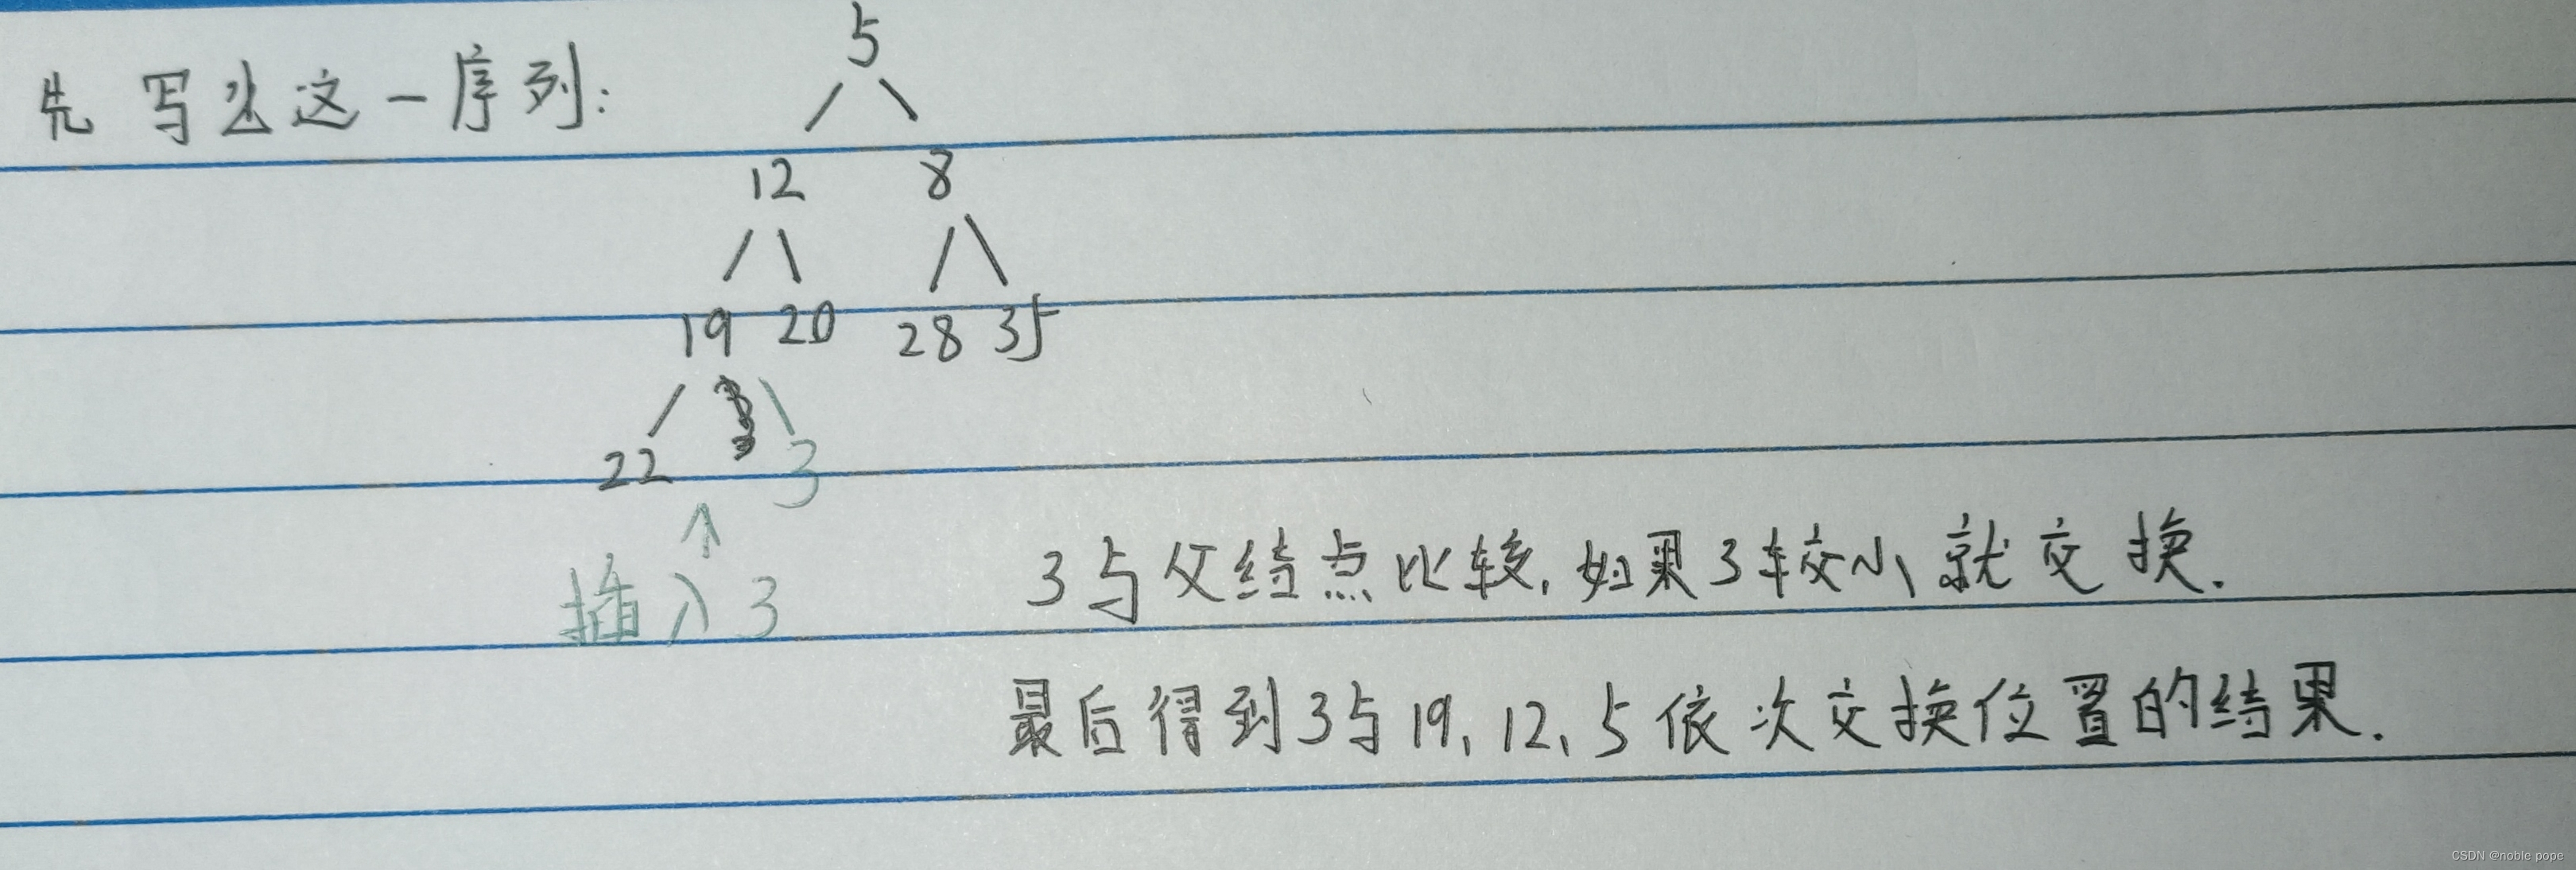 5
先写出这一序列:
12 8
19 20 28 35
22 3
插入3
3与父结点比较,如果3较小就交换.
最后得到3与19、12、5依次交换位置的结果.
CSDN @noble pope